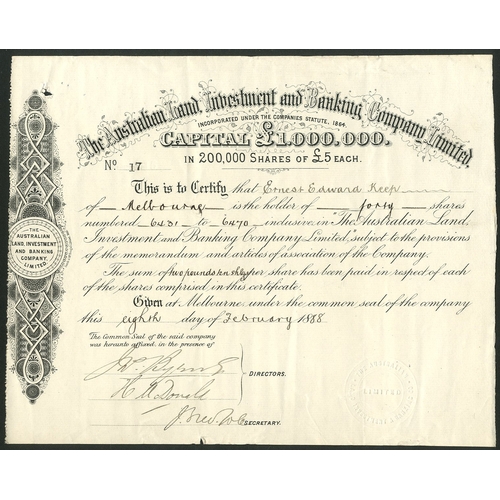 The Australian Land, Investment and Banking Company Limited.
INCORPORATED UNDER THE COMPANIES STATUTE, 1864.
CAPITAL £1,000,000.
IN 200,000 SHARES OF £5 EACH.
No 17
This is to Certify that Ernest Edward Keep
of Melbourne is the holder of forty shares
numbered 6431 to 6470 inclusive in "The Australian Land
Investment and Banking Company Limited," subject to the provisions
of the memorandum and articles of association of the Company.
The sum of two pounds ten shgs per share has been paid in respect of each
of the shares comprised in this certificate.
Given at Melbourne under the common seal of the company
this eighth day of February 1888
The Common Seal of the said company
was hereunto affixed, in the presence of
DIRECTORS.
McDonald
SECRETARY.
THE
AUSTRALIAN
LAND, INVESTMENT
AND BANKING
COMPANY,
LIMITED.
LIMITED